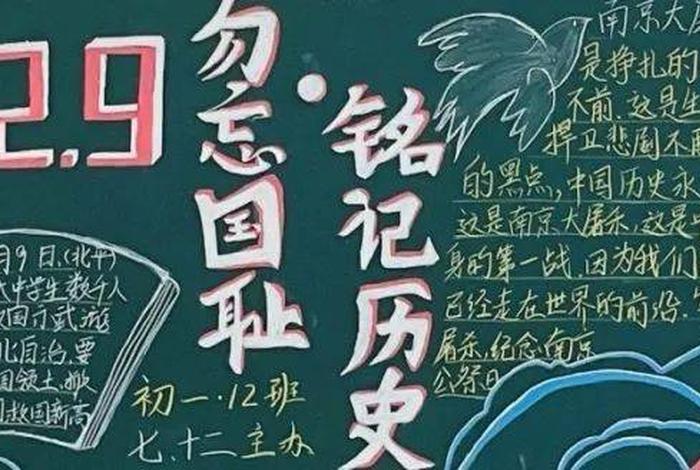 2.9
勿忘国耻
铭记历史
月9日.(北平)
大中学生数千人
自治,要
国领土,撤
救国新高
初一·12班
七.十二主办
南京大
是挣扎的
不前.这是
捍卫悲剧不
的黑点,中国历史永
这是南京大屠杀,这是
身的第一战,因为我们
已经走在世界的前沿.
屠杀,纪念南京
公祭日